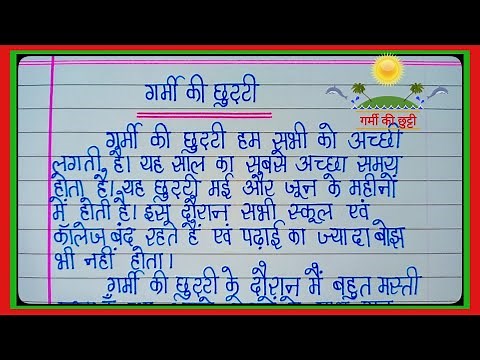 गर्मी की छुट्टी
गर्मी की छुट्टी
गर्मी की छुट्टी हम सभी को अच्छी
लगती है। यह साल का सबसे अच्छा समय
होता है। यह छुट्टी मई और जून के महीनों
में होती है। इस दौरान सभी स्कूल एवं
कॉलेज बंद रहते हैं एवं पढ़ाई का ज्यादा बोझ
भी नहीं होता।
गर्मी की छुट्टी के दौरान मैं बहुत मस्ती